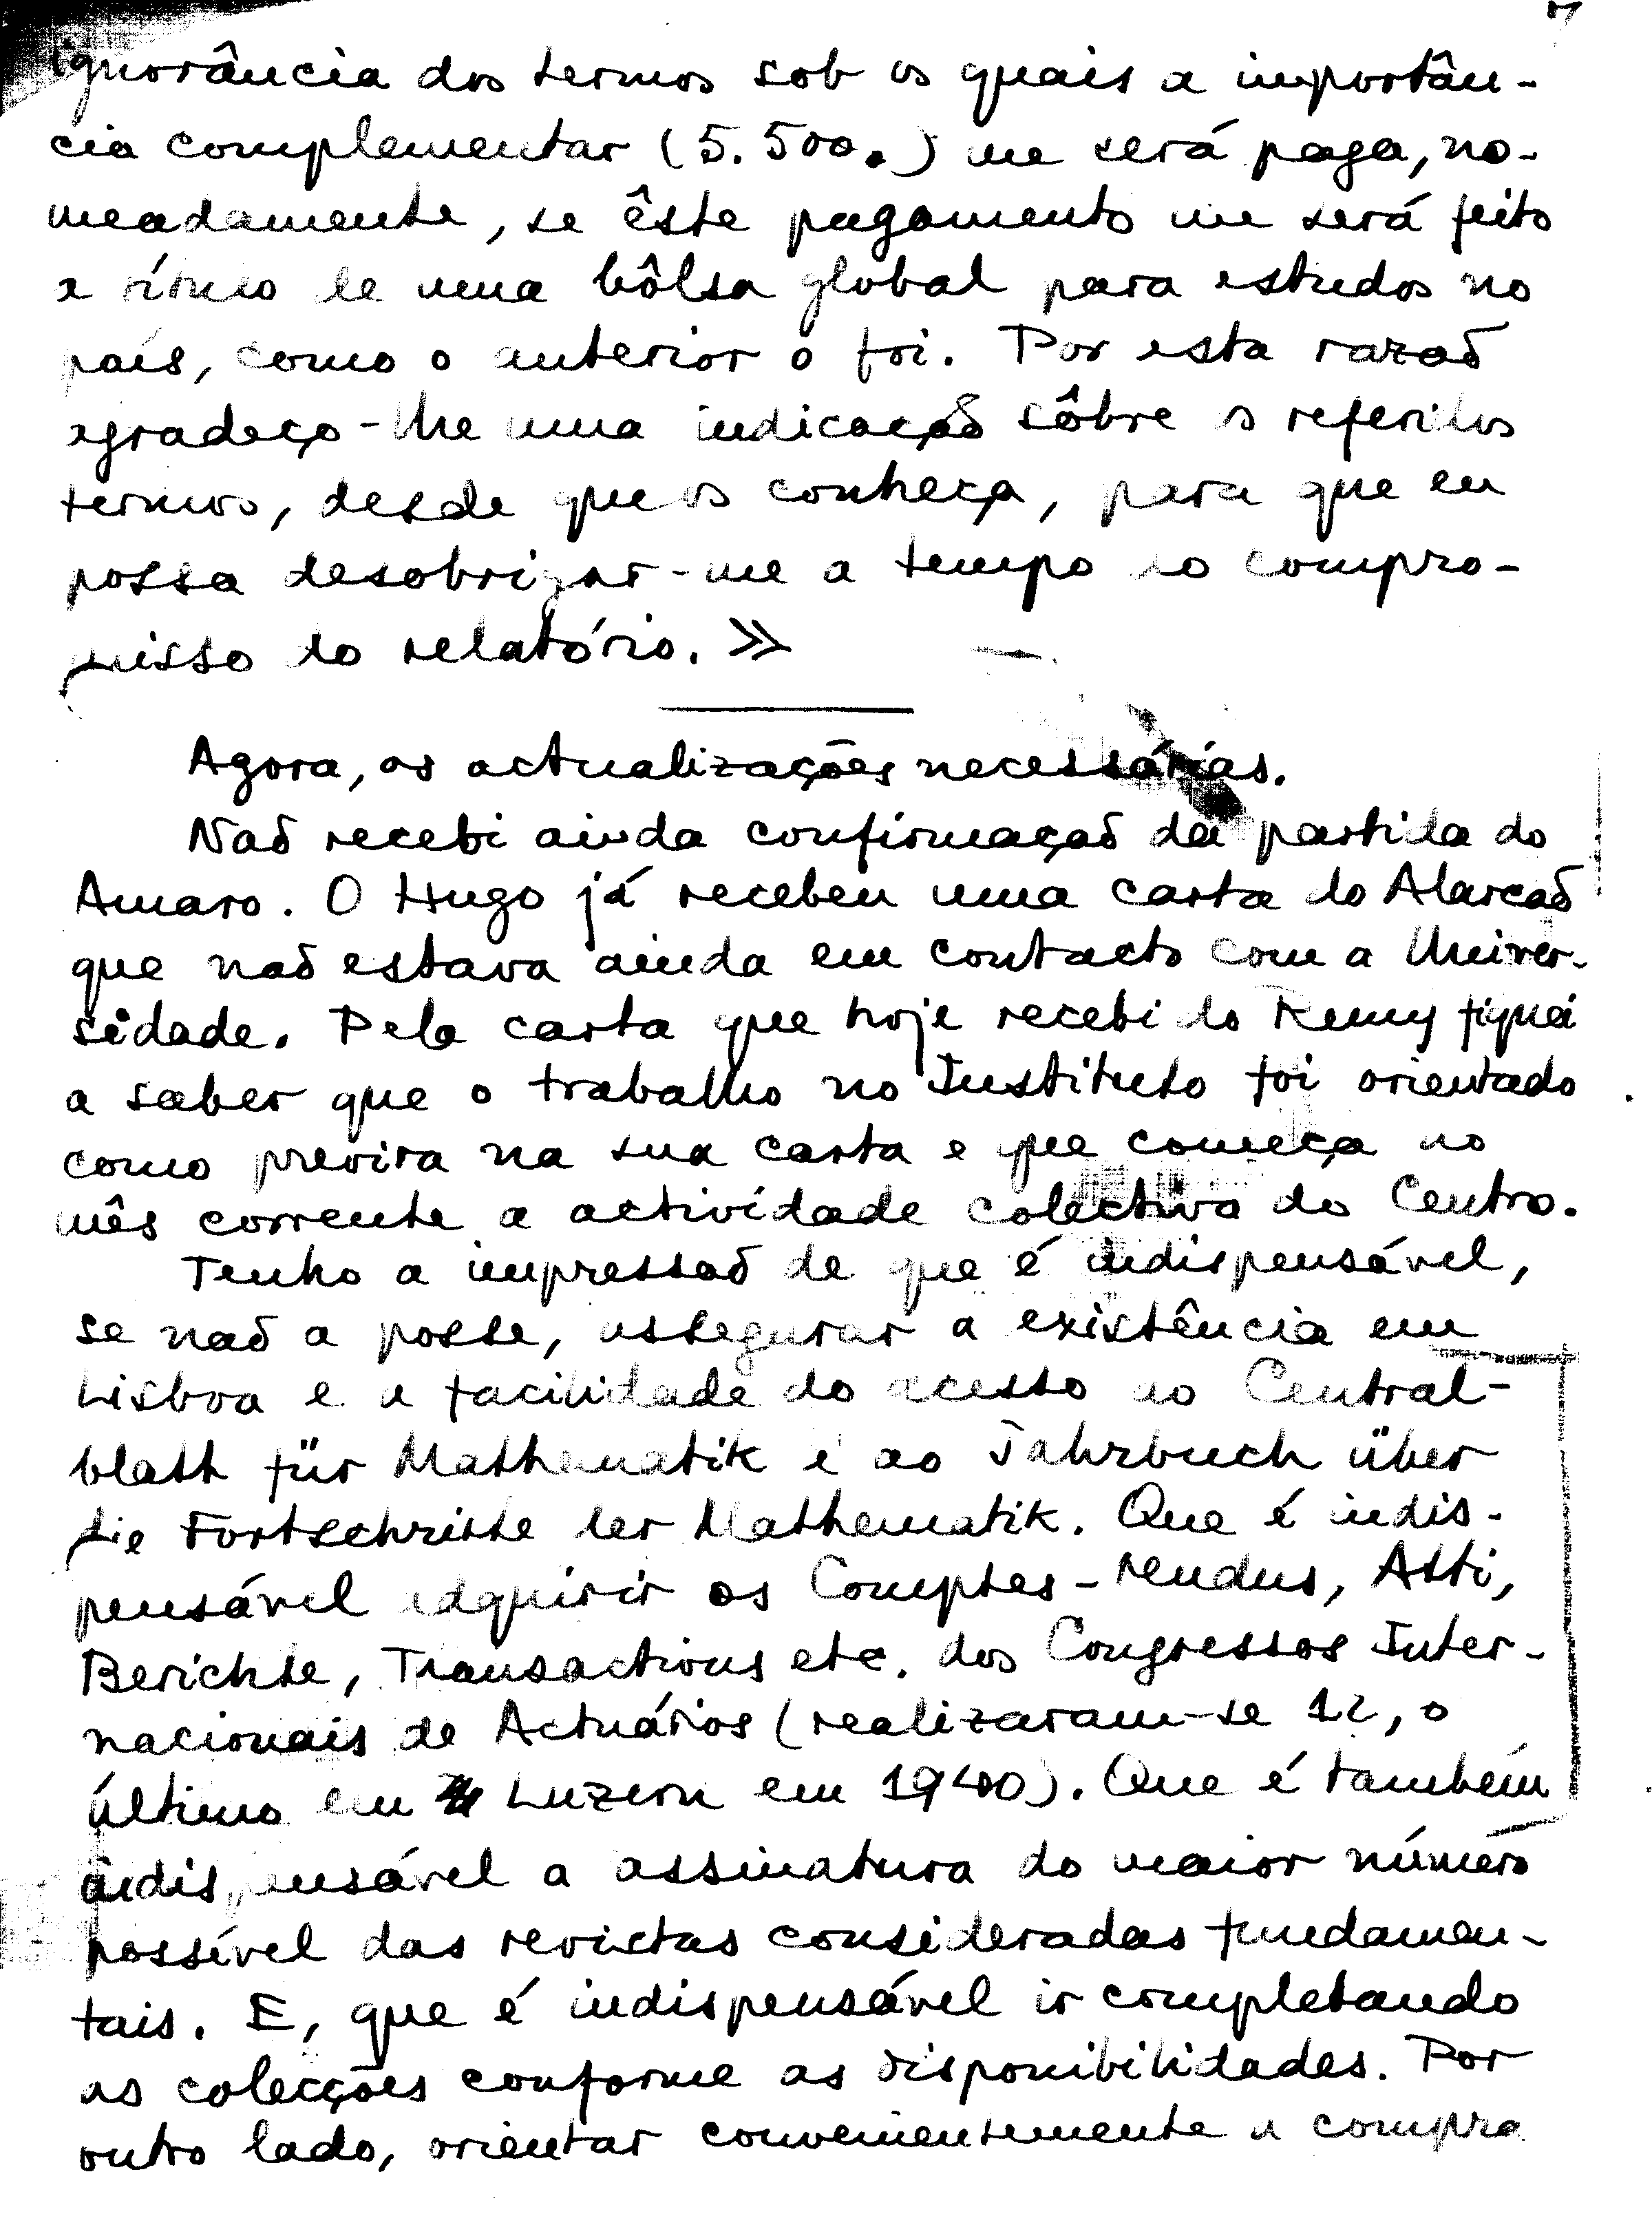 ignorância dos termos sob os quais a importân-
cia complementar (5.500.) me será paga, no-
meadamente, se êste pagamento me será feito
a título de uma bôlsa global para estudos no
país, como o anterior o foi. Por esta razaõ
agradeço-lhe uma indicaçaõ sôbre os referidos
termos, desde que os conheça, para que eu
possa desobrigar-me a tempo do compro-
misso do relatório. »
Agora, as actualizações necessárias.
Naõ recebi ainda confirmaçaõ da partida do
Amaro. O Hugo já recebeu uma carta do Alarcaõ
que naõ estava ainda em contacto com a Univer-
sidade. Pela carta que hoje recebi do Remy fiquei
a saber que o trabalho no Instituto foi orientado
como previra na sua carta e que começa no
mês corrente a actividade colectiva do Centro.
Tenho a impressaõ de que é indispensável,
se naõ a posse, assegurar a existência em
Lisboa e a facilidade do acesso ao Central-
blatt für Mathematik e ao Jahrbuch über
die Fortschritte der Mathematik. Que é indis-
pensável adquirir os Comptes-rendus, Atti,
Berichte, Transactions etc. dos Congressos Inter-
nacionais de Actuários (realizaram-se 12, o
último em Luzern em 1940). Que é também
indispensável a assinatura do maior número
possível das revistas consideradas fundamen-
tais. E, que é indispensável ir completando
as colecções conforme as disponibilidades. Por
outro lado, orientar convenientemente a compra